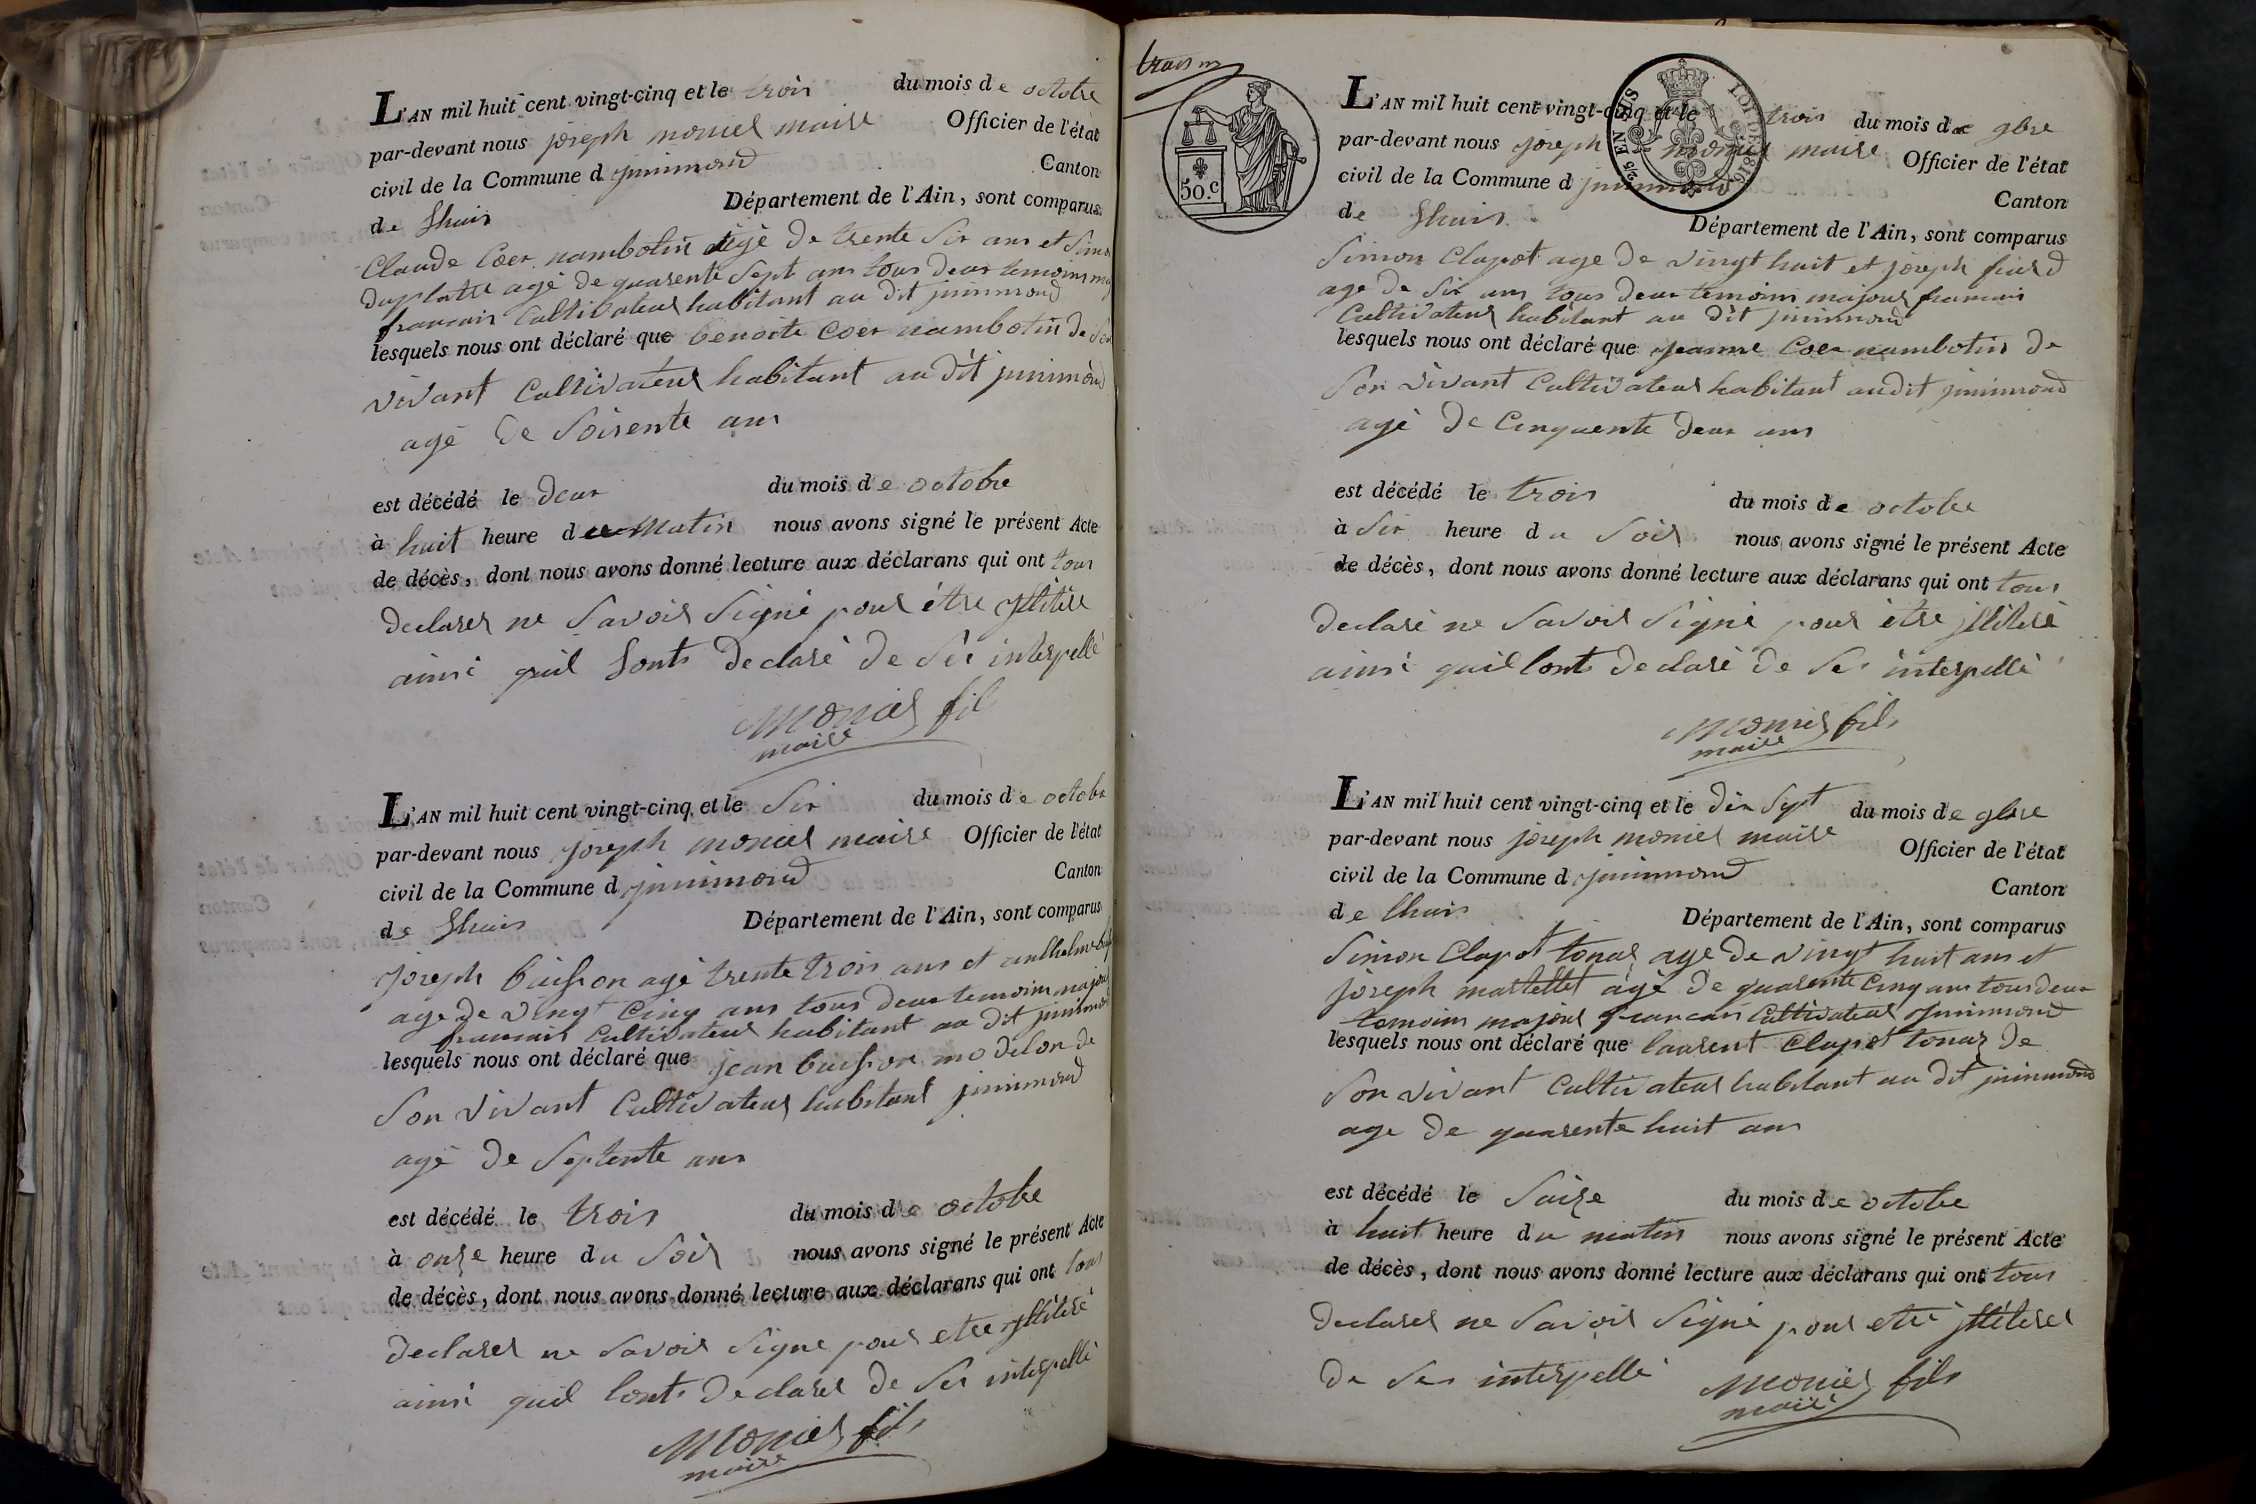 L'AN mil huit cent vingt-cinq et le trois du mois de octobre
par-devant nous joseph monier maire Officier de l'état
civil de la Commune d jninimond Canton
de Lhuis Département de l'Ain, sont comparus
Claude Coer nambotin agé de trente Six ans et Simon
duplatre agé de quarente Sept ans tous deux temoins maj
francais Cultivateur habitant au dit jninimond
lesquels nous ont déclaré que benoite Coer nambotin de Son
vivant Cultivateur habitant au dit jninimond
agé de Soisente ans
est décédé le deux du mois de octobre
à huit heure du matin nous avons signé le présent Acte
de décès, dont nous avons donné lecture aux déclarans qui ont tous
declarer ne Savoir Signé pour être jllitéré
ainsi quil Lonts declaré de Sér interpellé
Monier fils
maire
L'AN mil huit cent vingt-cinq et le Six du mois de octobre
par-devant nous joseph monier maire Officier de l'état
civil de la Commune d jninimond Canton
de Lhuis Département de l'Ain, sont comparus
joseph buisson agé trente trois ans et anthelme
age de vingt Cinq ans tous deux temoins majeur
francais Cultivateur habitant au dit jninimond
lesquels nous ont déclaré que jean buisson modelon de
Son vivant Cultivateur habitant jninimond
agé de Septente ans
est décédé le trois du mois de octobre
à onze heure du Soir nous avons signé le présent Acte
de décès, dont nous avons donné lecture aux déclarans qui ont tous
declarer ne Savoir Signe pour etre jllitéré
ainsi quil Lonts declarer de Ser interpellé
Monier fils
maire
50.C
2/5 EN SUS
LOI DE 1816
L'AN mil huit cent vingt-cinq et le trois du mois de 9bre
par-devant nous joseph monier maire Officier de l'état
civil de la Commune d jninimond Canton
de Lhuis Département de l'Ain, sont comparus
Simon Clapot age de vingt huit et joseph
age de Six ans tous deux temoins majour francais
Cultivateur habitant au dit jninimond
lesquels nous ont déclaré que jeanne Coer nambotin de
Son vivant Cultivateur habitant audit jninimond
agé de Cinquente deux ans
est décédé le trois du mois de octobre
à Six heure du Soir nous avons signé le présent Acte
de décès, dont nous avons donné lecture aux déclarans qui ont tous
declaré ne Savoir Signé pour être jllitéré
ainsi quil Lont declaré de Ser interpellé
Monier fils
maire
L'AN mil huit cent vingt-cinq et le dix Sept du mois de 9bre
par-devant nous joseph monier maire Officier de l'état
civil de la Commune d jninimond Canton
de Lhuis Département de l'Ain, sont comparus
Simon Clapot tonaz age de vingt huit ans et
joseph martellet agé de quarente Cinq ans tous deux
temoins majour francais Cultivateur jninimond
lesquels nous ont déclaré que laurent Clapot tonaz de
Son vivant Cultivateur habitant au dit jninimond
age de quarente huit ans
est décédé le Saize du mois de octobre
à huit heure du matin nous avons signé le présent Acte
de décès, dont nous avons donné lecture aux déclarans qui ont tous
declarer ne Savoir Signé pour etré jllitérer
de Ser interpellé
Monier fils
maire